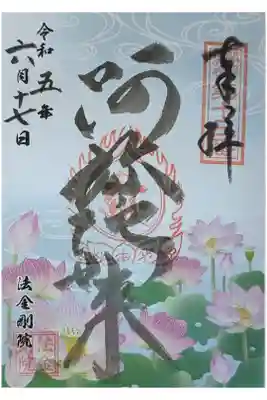 奉拝
阿弥陀如来
令和五年
六月十七日
法金剛院